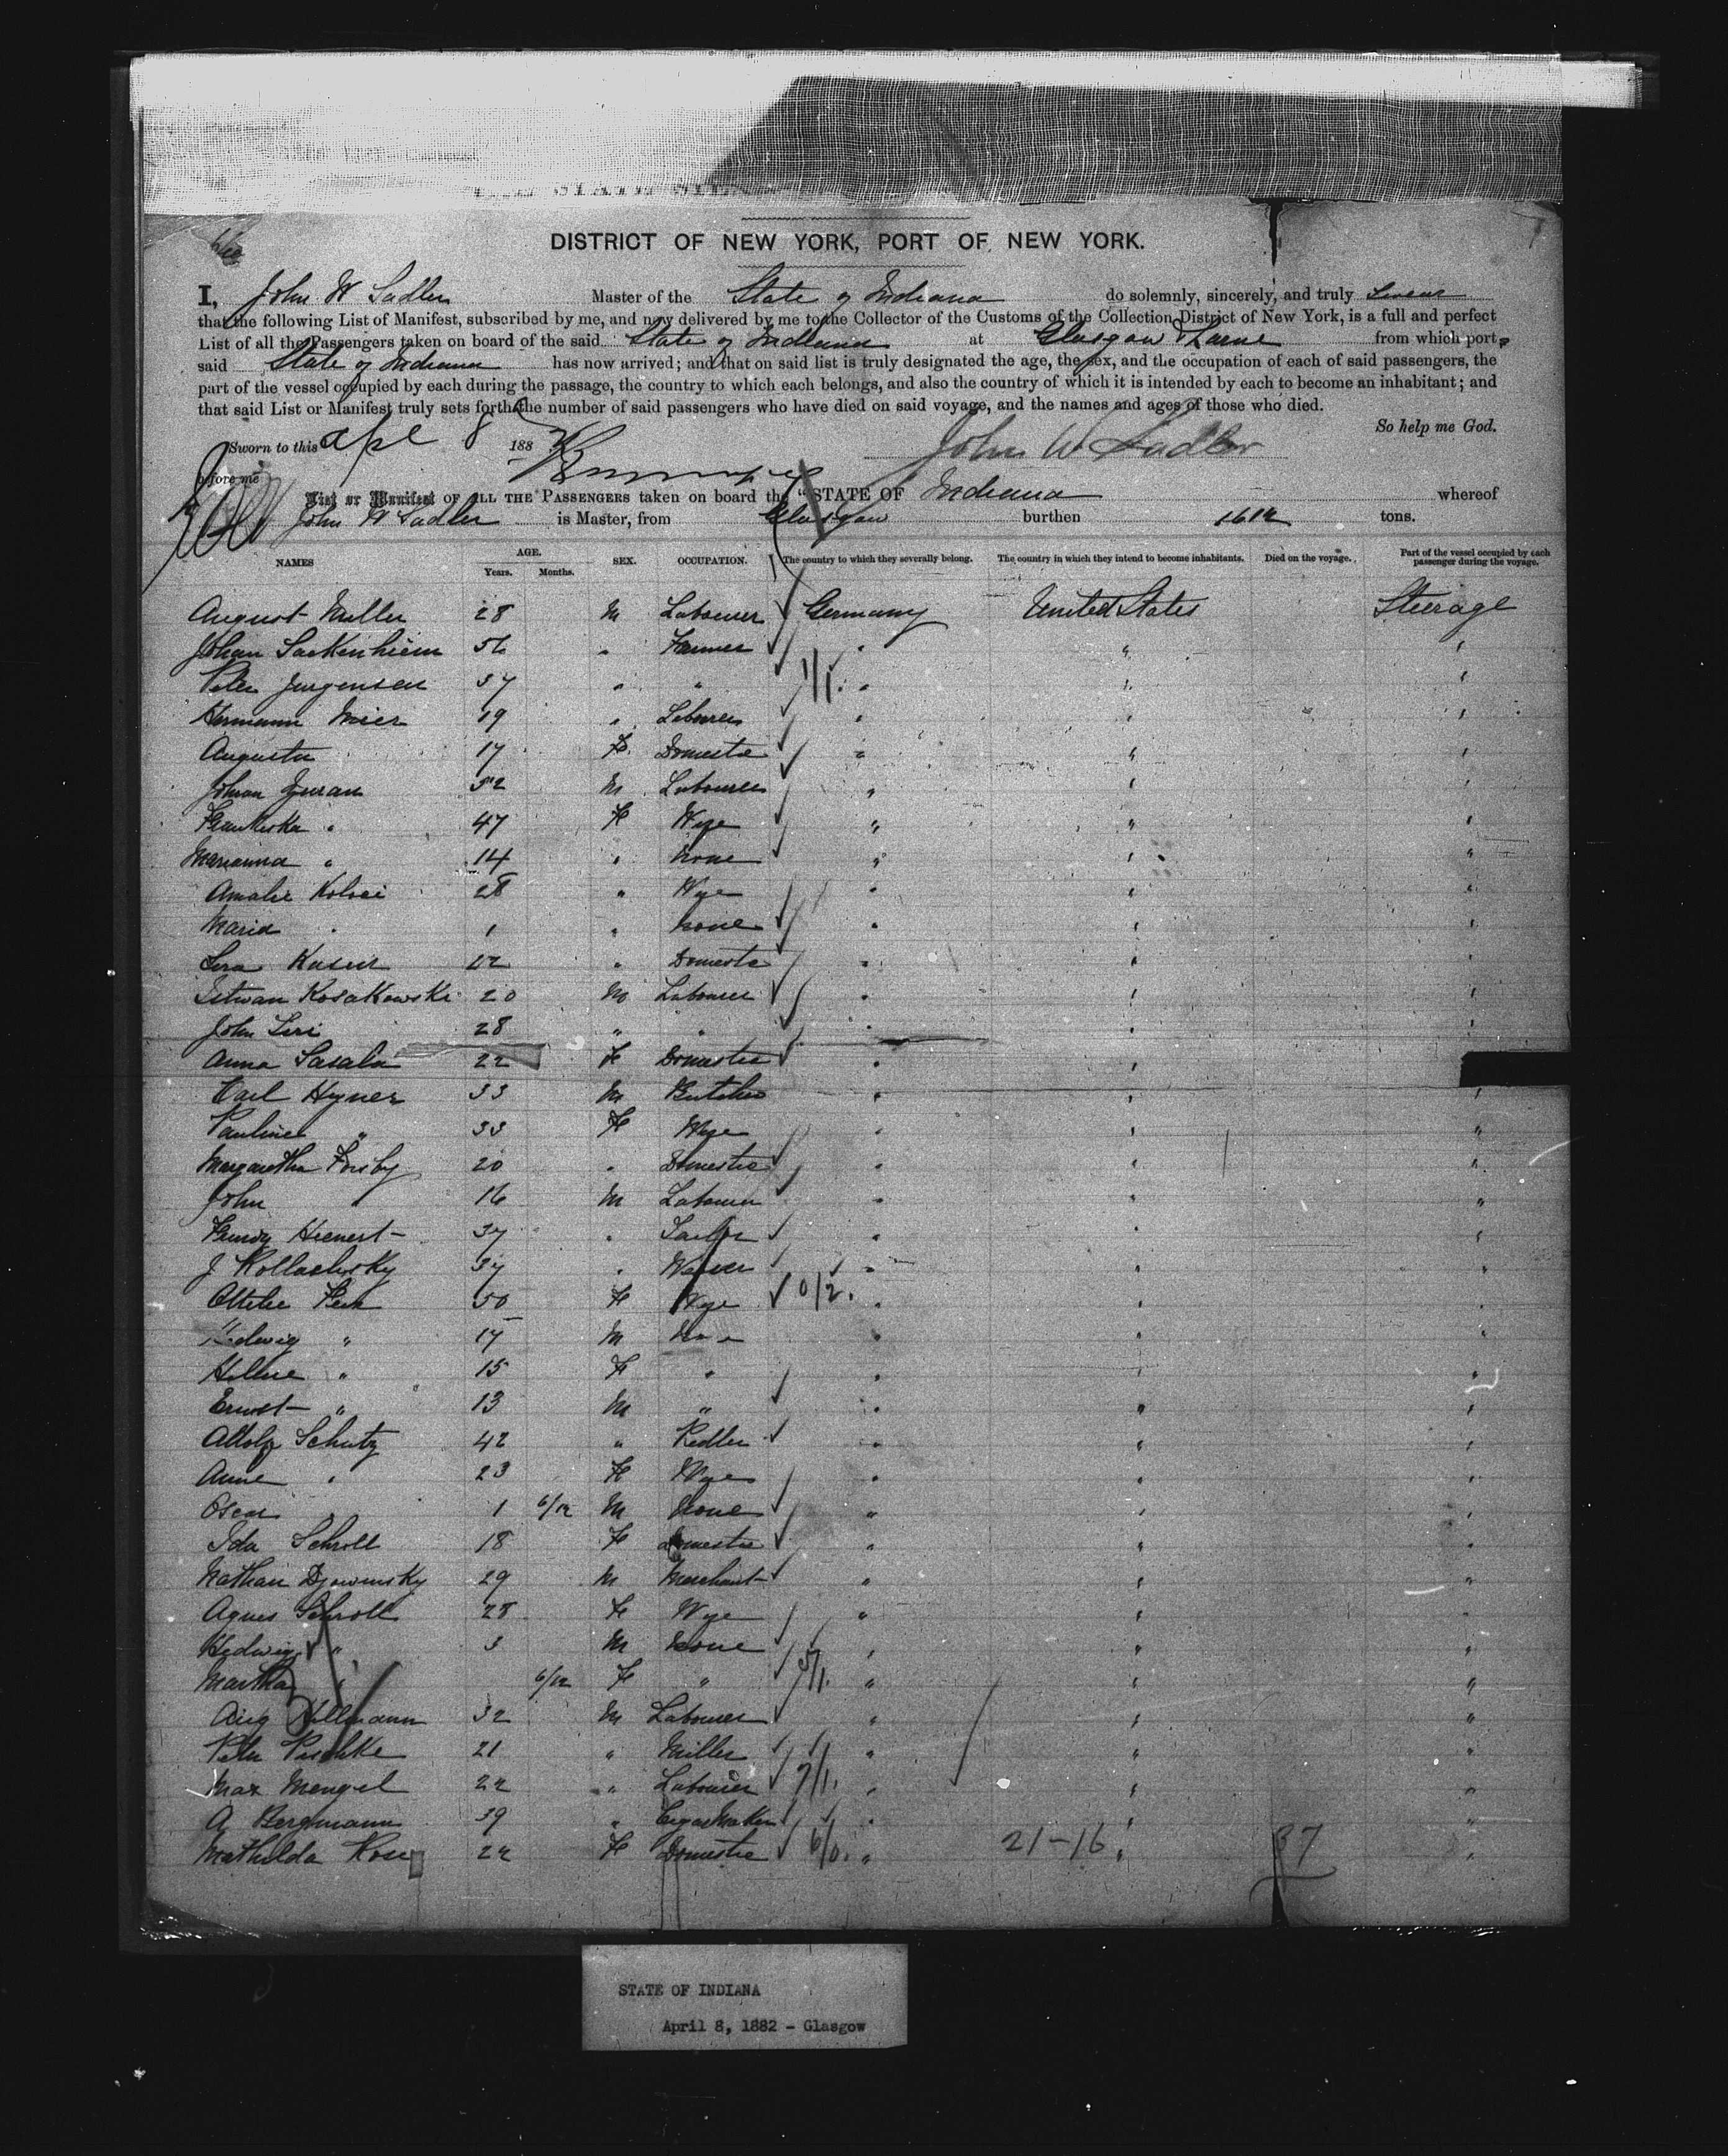 DISTRICT OF NEW YORK, PORT OF NEW YORK.
I, John W Sadler Master of the State of Indiana do solemnly, sincerely, and truly Swear
that the following List of Manifest, subscribed by me, and now delivered by me to the Collector of the Customs of the Collection District of New York, is a full and perfect
List of all the Passengers taken on board of the said State of Indiana at Glasgow & Larne from which port
said State of Indiana has now arrived; and that on said list is truly designated the age, the sex, and the occupation of each of said passengers, the
part of the vessel occupied by each during the passage, the country to which each belongs, and also the country of which it is intended by each to become an inhabitant; and
that said List or Manifest truly sets forth the number of said passengers who have died on said voyage, and the names and ages of those who died.
So help me God.
Sworn to this Apl 8 1882 John W Sadler
before me
List or Manifest OF ALL THE PASSENGERS taken on board the "STATE OF Indiana whereof
John W Sadler is Master, from Glasgow burthen 1612 tons.
NAMES AGE. Years. Months. SEX. OCCUPATION. The country to which they severally belong. The country in which they intend to become inhabitants. Died on the voyage. Part of the vessel occupied by each passenger during the voyage.
August Muller 28 M Labourer Germany United States Steerage
Johan Sackenhiem 56 " Farmer " " "
Peter Jurgensen 37 " " 1/1. " " "
Hermann Meier 19 " Labourer " " "
Augusta 17 F Domestic " " "
Johan 52 M Labourer " " "
Franziska " 47 F Wife " " "
Marianna " 14 " None " " "
Amalie 28 " Wife " " "
Maria " 1 " None " " "
Kaser " Domestic " " "
Kosakowski 20 M Labourer " " "
John 28 " " " " "
Anna Sasala 22 F Domestic " "
Carl Hyner 33 M Butcher " " "
Pauline " 33 F Wife " " "
Margaretha Forsby 20 " Domestic " " "
John " 16 M Labourer " " "
Hienert 37 " Tailor " " "
J 37 " " " "
Ottilie 50 F Wife 0/2. " " "
Hedwig " 17 M None " " "
Helene " 15 F " " " "
Ernst " 13 M " " " "
Adolf Schutz 42 " Pedler " " "
Anne " 23 F Wife " " "
Oscar " 1 6/12 M None " " "
Ida Schroll 18 F Domestic " " "
Nathan 29 M Merchant " " "
Agnes Schroll 28 F Wife " " "
Hedwig " 3 M None " " "
Martha " 6/12 F " 5/1. " " "
Aug Hillmann 32 M Labourer " " "
Peter Peschke 21 " Miller " " "
Max Mengel 22 " Labourer 7/1. " " "
A Bergmann 39 " Cigar Maker " " "
Mathilda Rose 22 F Domestic 6/0. " 21-16 " 37 "
STATE OF INDIANA
April 8, 1882 - Glasgow